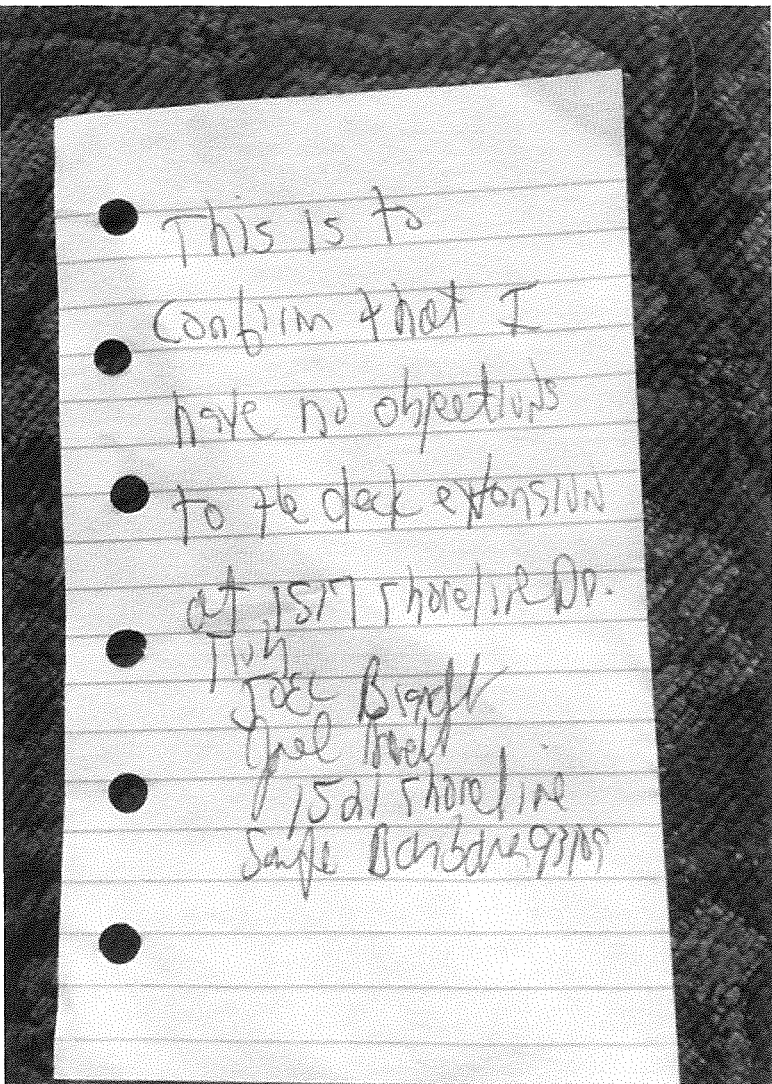 This is to
Confirm that I
have no objections
to the deck extension
at 1517 Shoreline Dr.
Joel
Joel
1521 Shoreline
Santa Barbara 93109